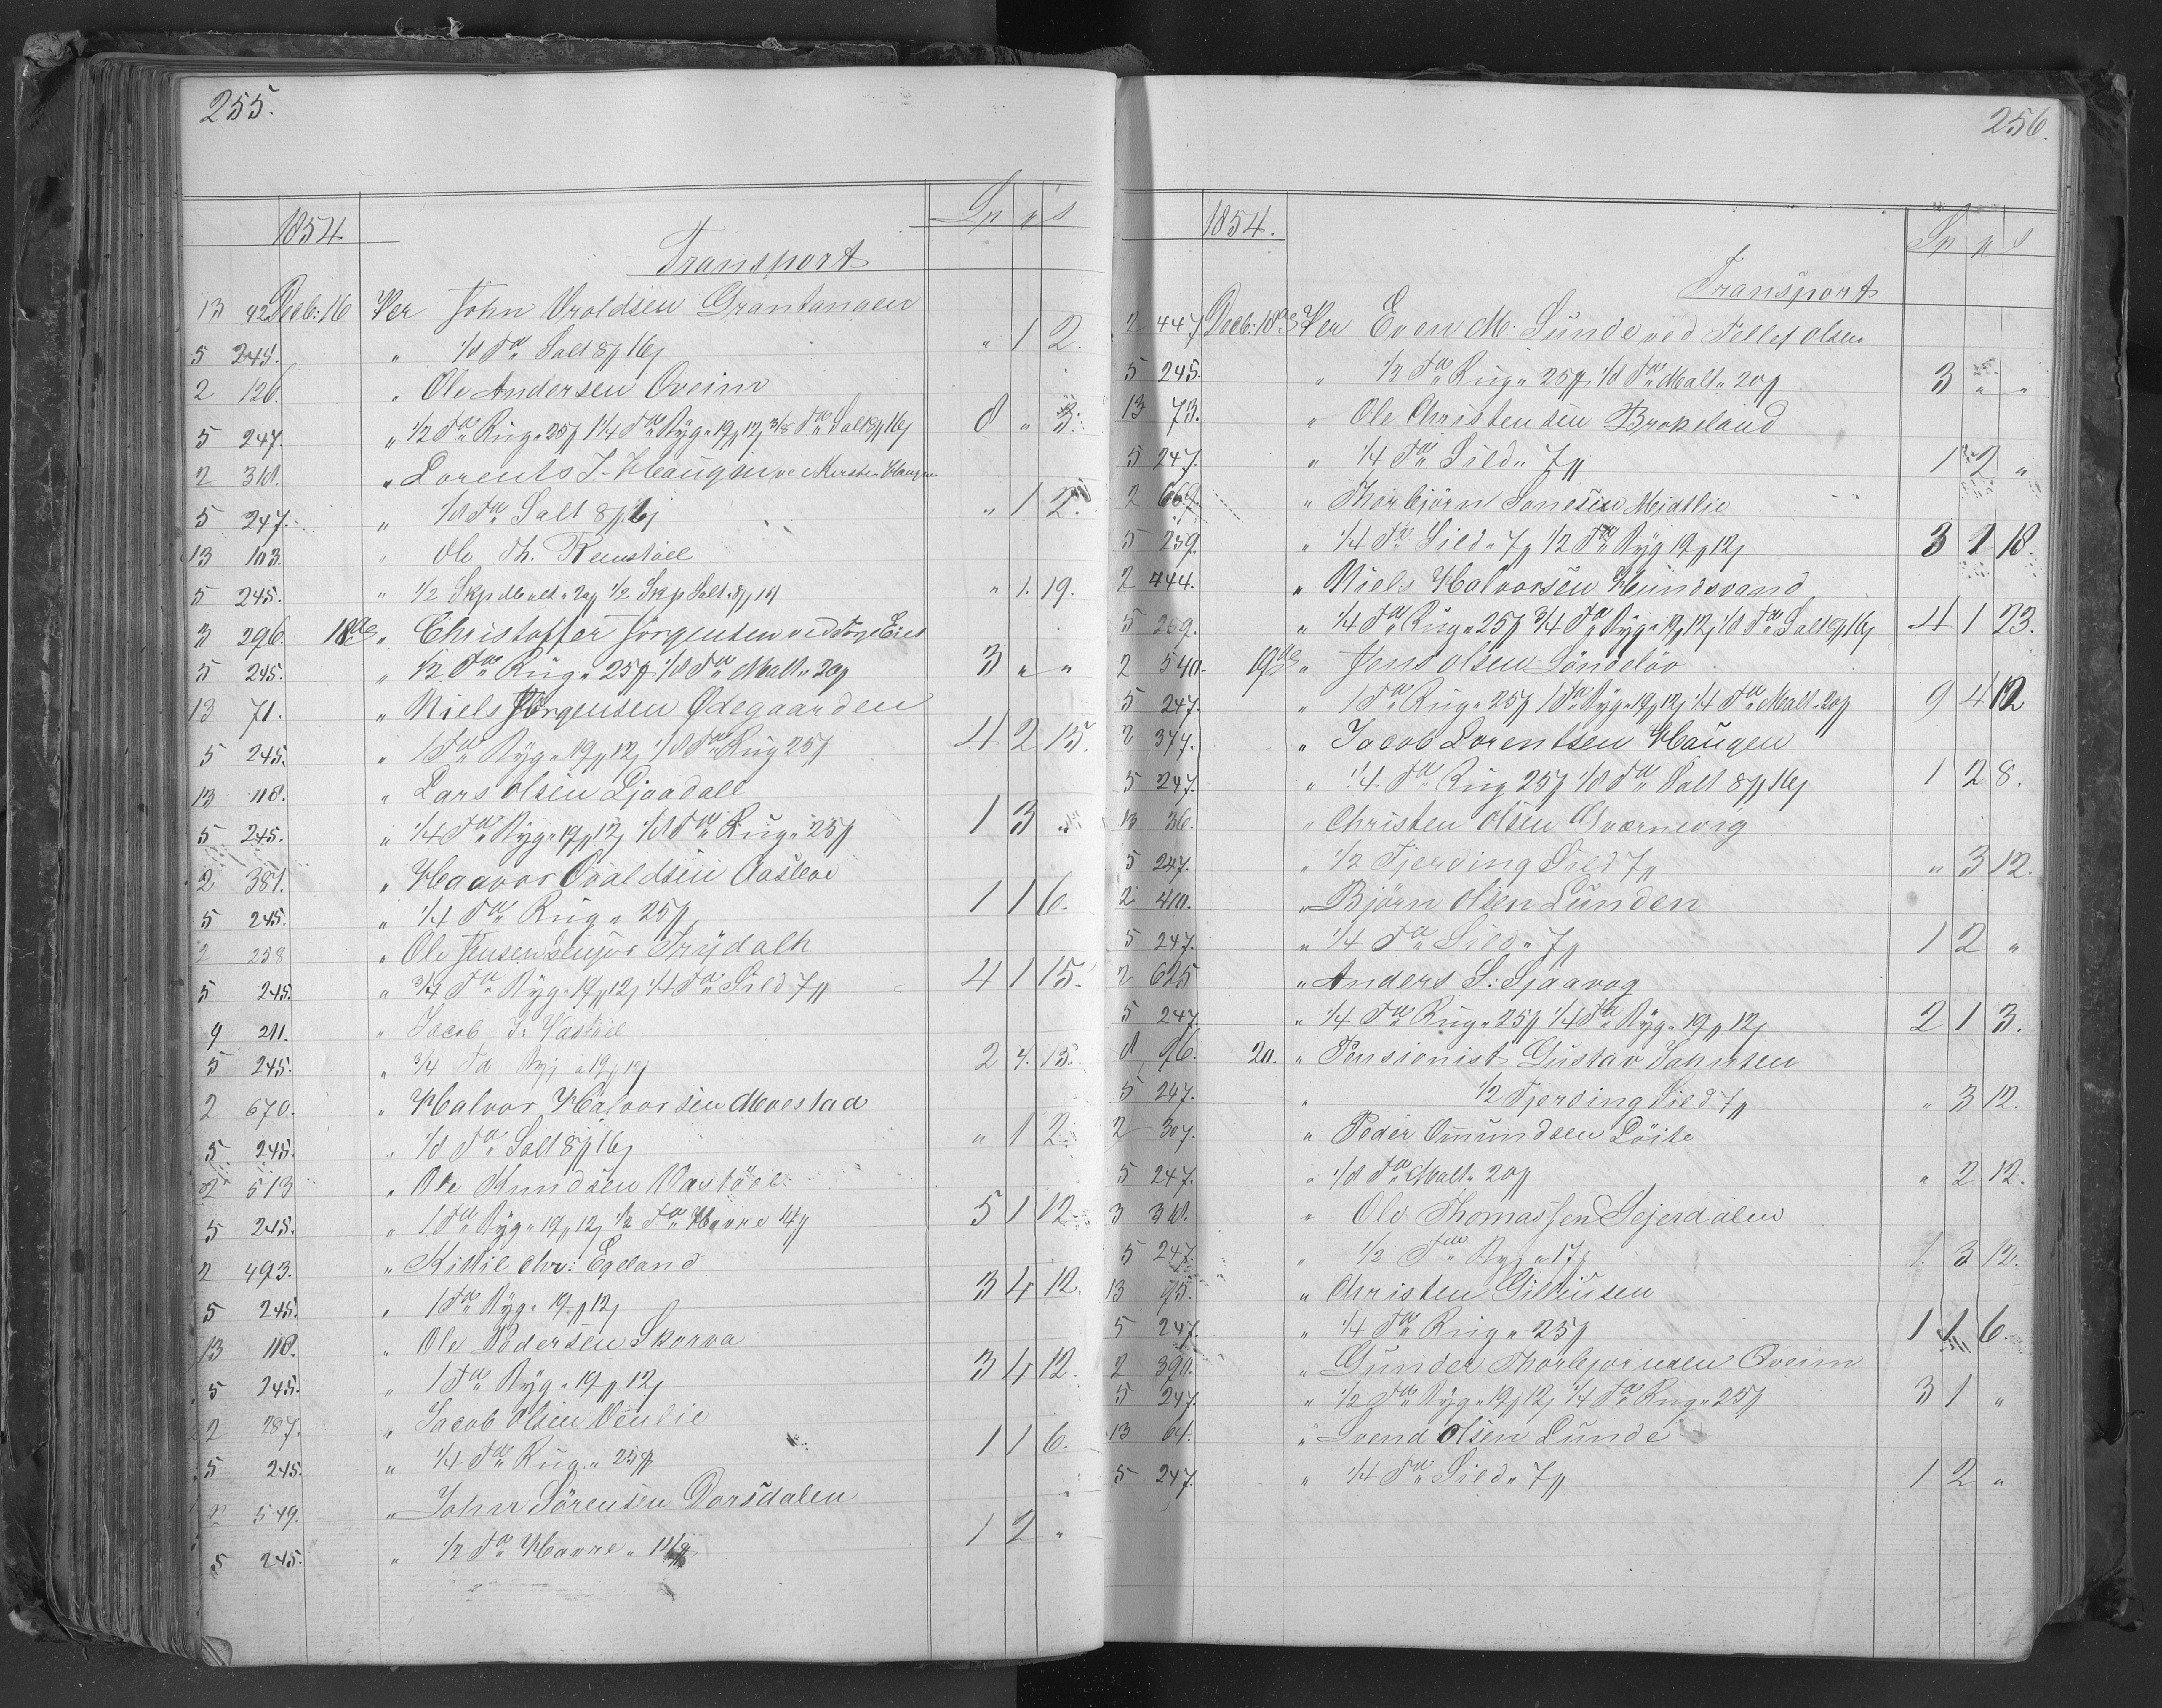 255.
1854. Sp # s
Transport
13 92 Decb: 16 Per John Oroldsen Grantangen
5 245. " 1/8 Tde Salt 8# 16s " 1 2.
2 126. " Ole Andersen Oveim
5 247. " 1/2 Tde Rug " 25# 1 1/4 Tde Byg " 19# 12s 3/8 Tde Salt 8# 16s 8 " 3.
2 318. " Lorents J. Haugen
5 247. " 1/8 Tde Salt 8# 16s " 1 2.
13 103. " Ole Th.
5 245. " 1/2 Skp Malt " 20# 1/2 Skp Salt " " 1. 19.
3 296. 18de " Christoffer Jörgensen ved
5 245. " 1/2 Tde Rug " 25# 1/8 Tde Malt " 20# 3 " "
13 71. " Niels Jörgensen Ødegaarden
5 245. " 1 Tde Byg " 19# 12s 1/8 Tde Rug 25# 4 2 15.
13 118. " Lars Olsen Ljosdall
5 245. " 1/4 Tde Byg " 19# 12s 1/8 Tde Rug " 25# 1 3 "
2 381. " Haavor Oraldsen
5 245. " 1/4 Tde Rug " 25# 1 1 6.
2 258 " Ole Jensen senjor Frydalh
5 245. " 3/4 Tde Byg " 19# 12s 1/4 Tde Sild 7# 4 1 15.
9 211. " Jacob J. Vastöel
5 245. " 3/4 Td Byg " 19# 12s 2 4. 15.
2 670. " Halvor Halvorsen Moestad
5 245. " 1/8 Tde Salt 8# 16s " 1 2.
2 513 " Ole Knudsen Vastöel
5 245. " 1 Tde Byg " 19# 12s 1/2 Tde Havre 14# 5 1 12.
2 493. " Kittil Chr: Egeland
5 245. " 1 Tde Byg " 19# 12s 3 4 12.
13 118. " Ole Pedersen Skorva
5 245. " 1 Tde Byg " 19# 12s 3 4 12.
2 287. " Jacob Olsen Venlie
5 245. " 1/4 Tde Rug " 25# 1 1 6.
2 549. " John Sörensen Dorsdalen
5 245. " 1/2 Tde Havre " 14# 1 2 "
256.
1854. Sp # s
Transport
2 447 Decb: 18de Per Even M: Sunde ved Tellef Olsen
5 245. " 1/2 Tde Rug " 25# 1/8 Tde Malt " 20# 3 " "
13 73. " Ole Christensen Brokeland
5 247. " 1/4 Tde Sild " 7# 1 2 "
2 667 " Thorbjörn Sonesen Midtlie
5 259. " 1/4 Tde Sild " 7# 1/2 Tde Byg 19# 12s 3 1 18.
2 444. " Niels Halvorsen Hundsvand
5 259. " 1/4 Tde Rug " 25# 3/4 Tde Byg " 19# 12s 1/8 Tde Salt 8# 16s 4 1 23.
2 540. 19de " Jens Olsen Söndelöv
5 247. " 1 Tde Rug " 25# 1 Tde Byg " 19# 12s 1/4 Tde Malt " 20# 9 4 12
2 377. " Jacob Lorentsen Haugen
5 247. " 1/4 Tde Rug 25# 1/8 Tde Salt 8# 16s 1 2 8.
13 36. " Christen Olsen Qværnevig
5 247. " 1/2 Fjerding Sild 7# " 3 12.
2 410. " Björn Olsen Lunden
5 247. " 1/4 Tde Sild " 7# 1 2 "
2 625 " Anders S: Sjaavog
5 247 " 1/4 Tde Rug " 25# 1/4 Tde Byg " 19# 12s 2 1 3.
8 96. 20. " Pensionist Gustav Jahnsen
5 247. " 1/2 Fjerding Sild 7# " 3 12.
2 307. " Peder Omundsen Löite
5 247. " 1/8 Tde Malt " 20# " 2 12.
3 311. " Ole Thomassen Sejerdalen
5 247. " 1/2 Tde Byg " 17# 1 3 12.
13 75. " Christen
5 247. " 1/4 Tde Rug " 25# 1 1 6.
2 390. " Gunder Thorbjornsen Oveim
5 247. " 1/2 Tde Byg " 19# 12s 1/4 Tde Rug " 25# 3 1 "
13 64. " Svend Olsen Lunde
5 247. " 1/4 Tde Sild " 7# 1 2 "